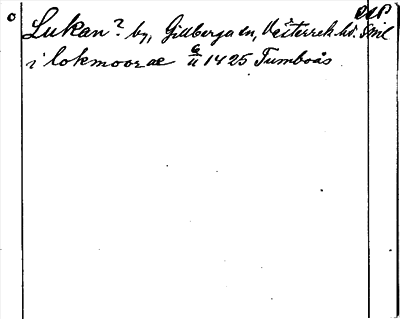 Lukan? by, Gillberga sn, Västerrek hd. Sml
i lokmoorae 6/11 1425 Tumboås